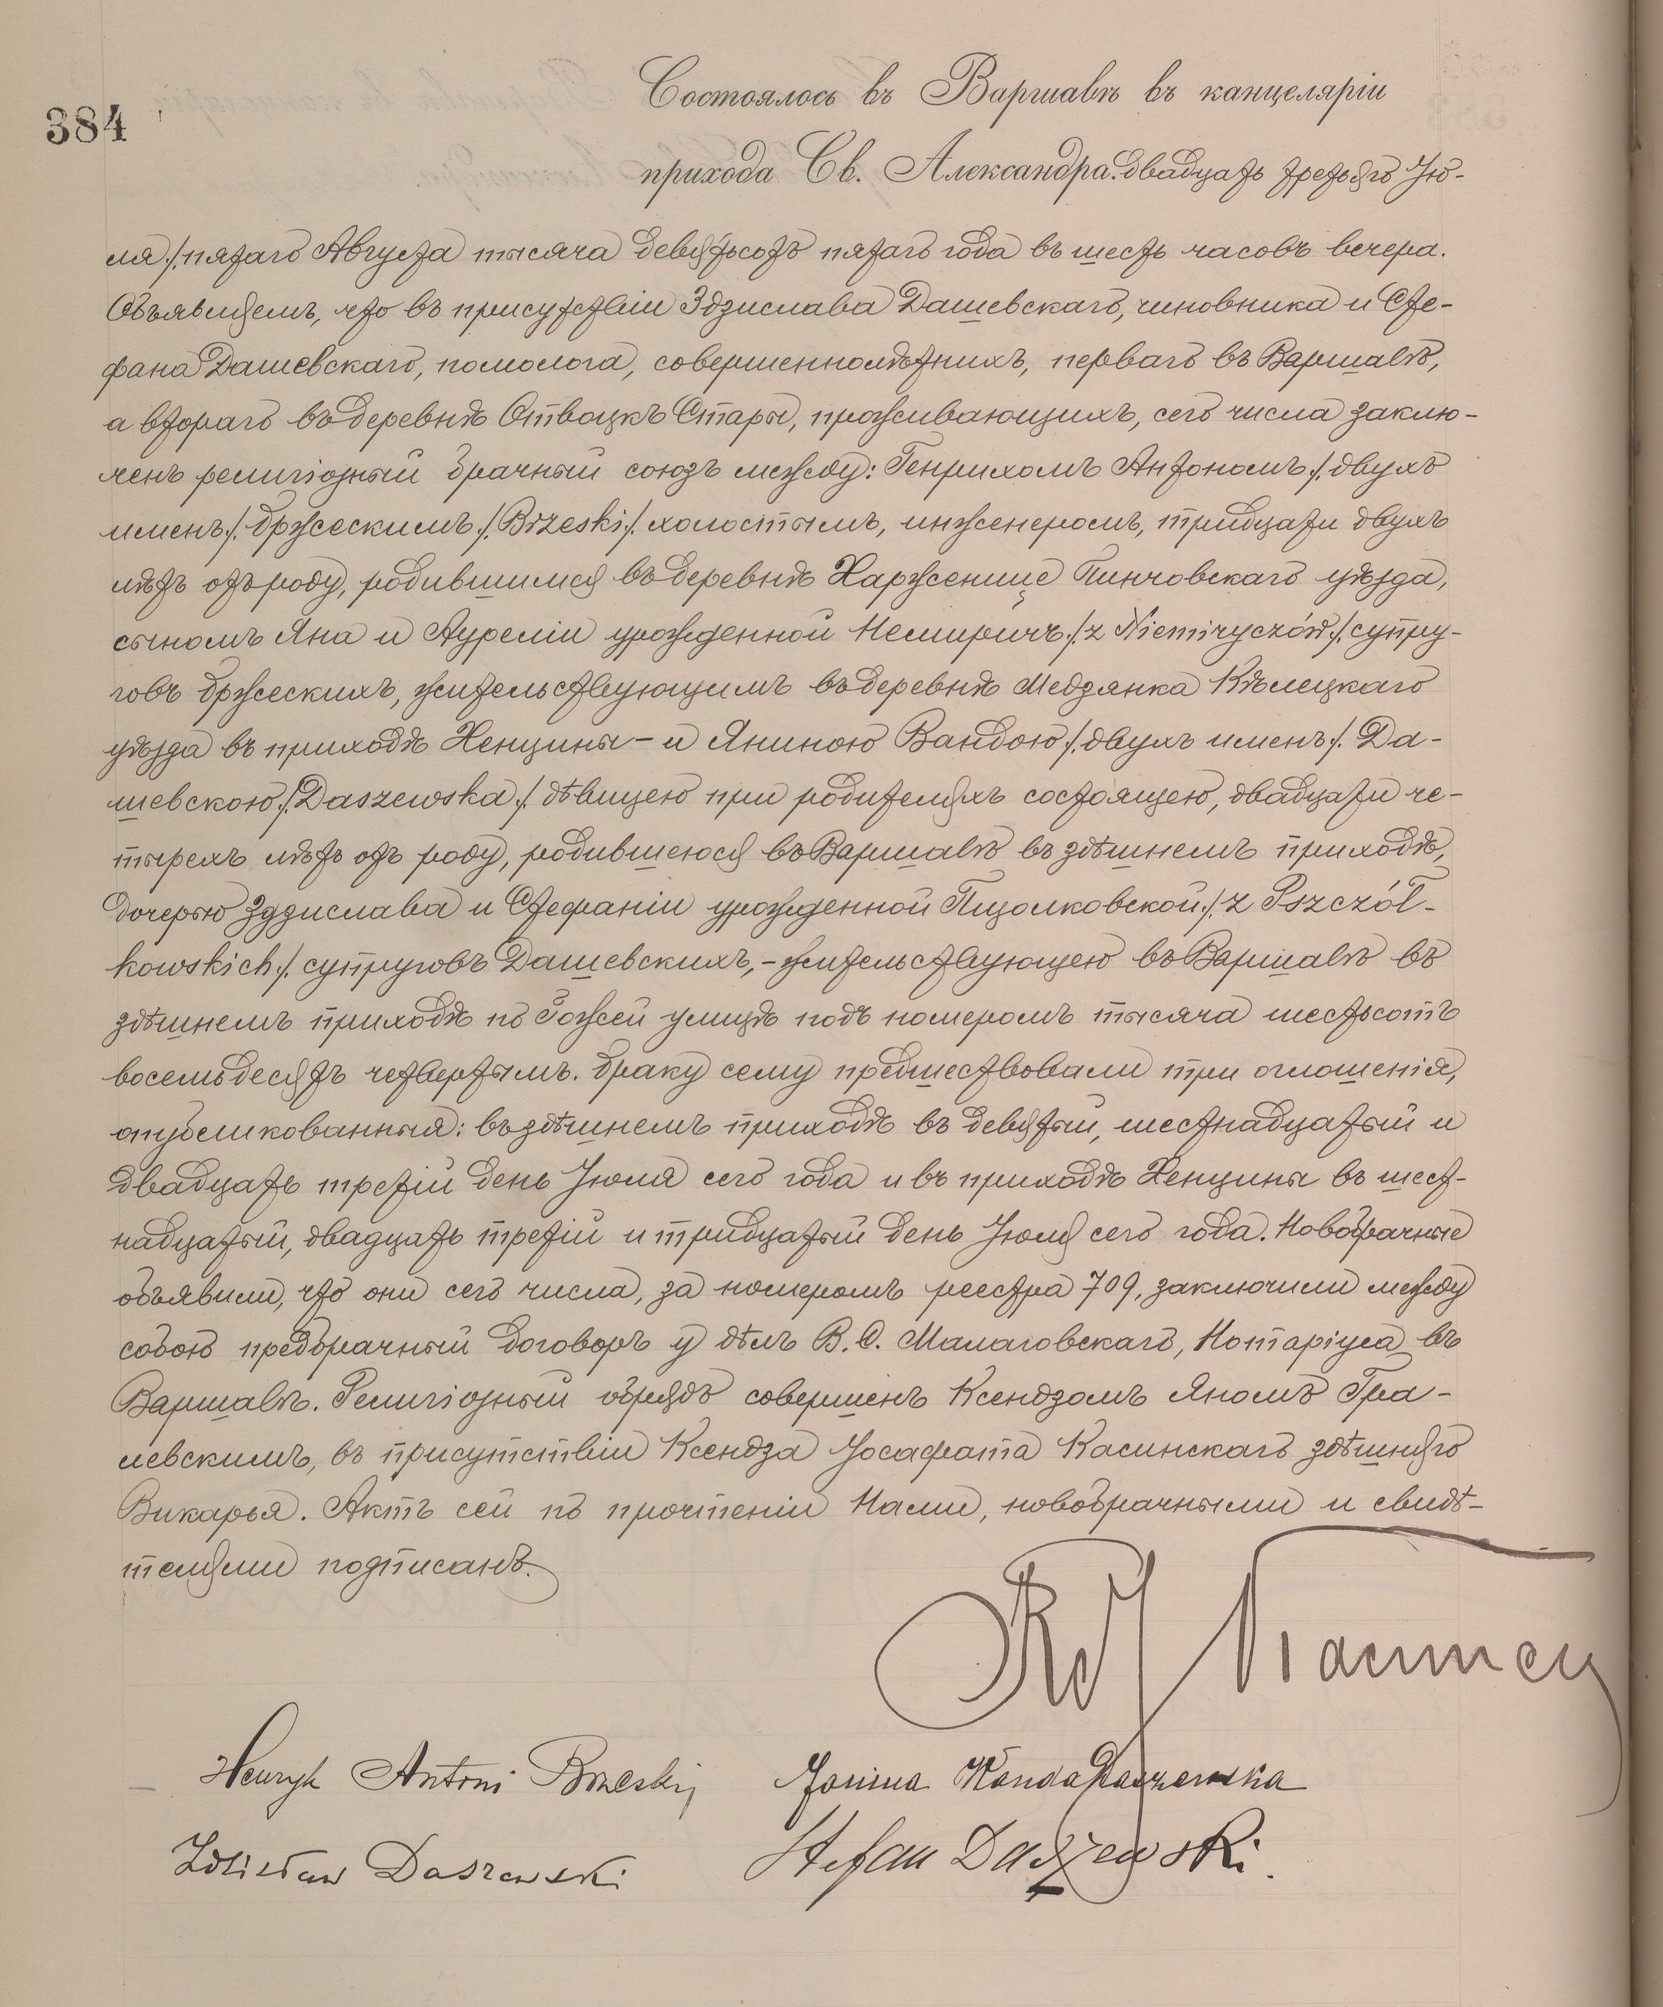 384
Состоялось въ Варшавѣ въ канцеляріи
прихода Св. Александра. двадцать третьяго Ію-
ля /. пятаго Августа тысяча девятьсотъ пятаго года въ шесть часовъ вечера.
Объявляемъ, что въ присутствіи Здзислава Дашевскаго, чиновника и Сте-
фана Дашевскаго, помолога, совершеннолѣтнихъ, перваго въ Варшавѣ,
а втораго въ деревнѣ Отвоцкъ Стары, проживающихъ, сего числа заклю-
ченъ религіозный брачный союзъ между: Генрихомъ Антономъ /. двухъ
именъ /. Бржескимъ /. Brzeski /. холостымъ, инженеромъ, тридцати двухъ
лѣтъ отъ роду, родившимся въ деревнѣ Харженице Пинчовскаго уѣзда,
сыномъ Яна и Ауреліи урожденной Немиричъ /. z Niemiryczów /. супру-
говъ Бржескихъ, жительствующимъ въ деревнѣ Медзянка Кѣлецкаго
уѣзда въ приходѣ Хенцины – и Яниною Вандою /. двухъ именъ /. Да-
шевскою /. Daszewska /. дѣвицею при родителяхъ состоящею, двадцати че-
тырехъ лѣтъ отъ роду, родившеюся въ Варшавѣ въ здѣшнемъ приходѣ,
дочерью Здзислава и Стефаніи урожденной Пщолковской /. z Pszczół-
kowskich /. супруговъ Дашевскихъ, – жительствующею въ Варшавѣ въ
здѣшнемъ приходѣ по Гожей улицѣ подъ номеромъ тысяча шестьсотъ
восемьдесятъ четвертымъ. Браку сему предшествовали три оглошенія,
опубликованныя: въ здѣшнемъ приходѣ въ девятый, шестнадцатый и
двадцать третій день Іюля сего года и въ приходѣ Хенцины въ шест-
надцатый, двадцать третій и тридцатый день Іюля сего года. Новобрачные
объявили, что они сего числа, за номеромъ реестра 709, заключили между
собою предбрачный договоръ у дѣлъ В. С. Малаговскаго, Нотаріуса въ
Варшавѣ. Религіозный обрядъ совершенъ Ксендзомъ Яномъ Гра-
левскимъ, въ присутствіи Ксендза Іосафата Касинскаго здѣшняго
Викарья. Актъ сей по прочтеніи Нами, новобрачными и свидѣ-
телями подписанъ.
Henryk Antoni Brzeski
Janina Wanda Daszewska
Zdzisław Daszewski
Stefan Daszewski.